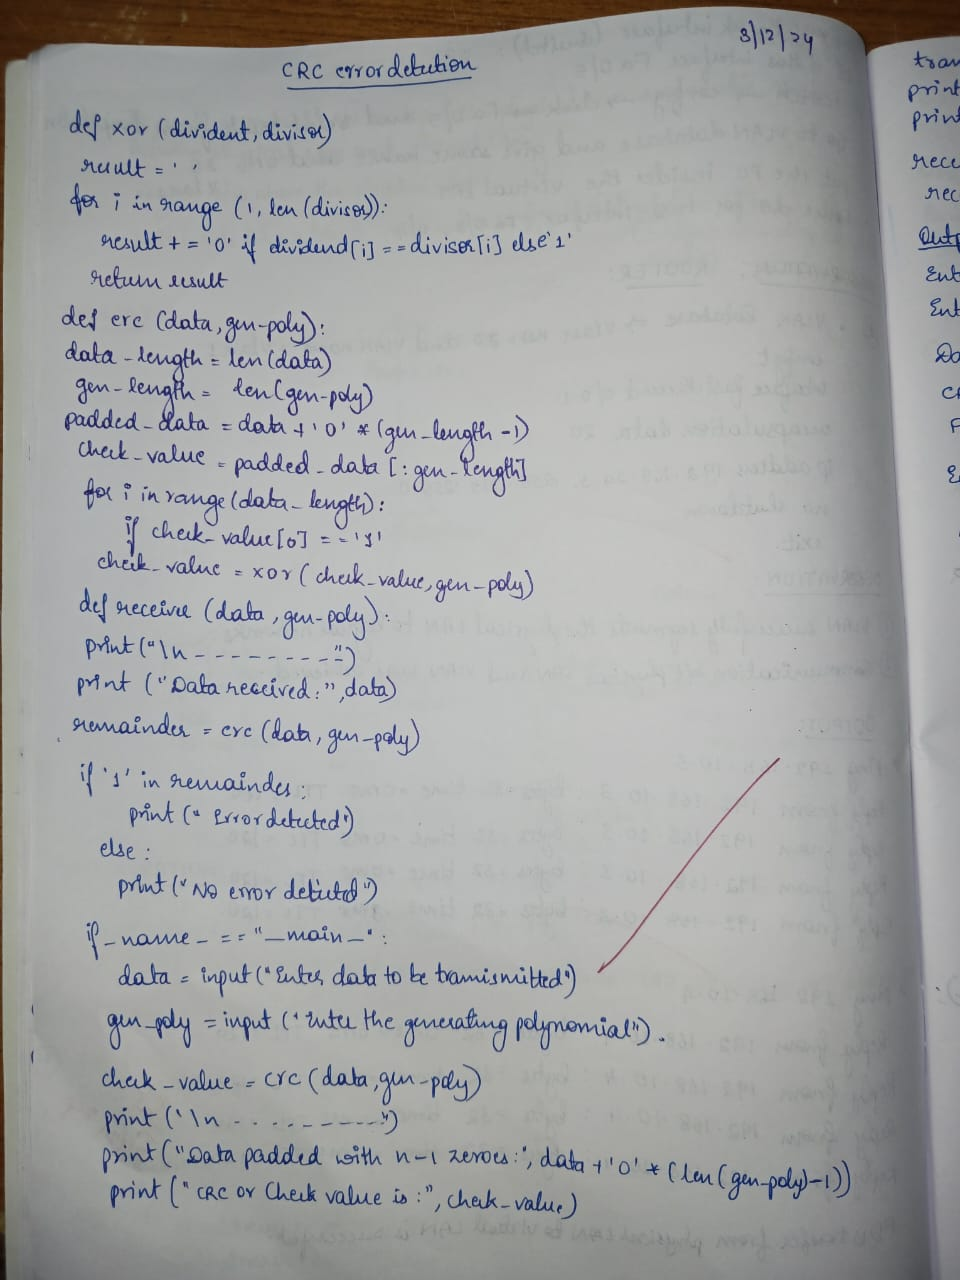 8/12/24
CRC error detection
def xor (divident, divisor)
result = ' '
for i in range (1, len (divisor)):
result + = '0' if dividend[i] == divisor[i] else '1'
return result
def crc (data, gen-poly):
data - length = len (data)
gen - length = len (gen-poly)
padded - data = data + '0' * (gen - length - 1)
check - value = padded - data [: gen - length]
for i in range (data - length):
if check - value [0] = = '1'
check - value = xor ( check - value, gen - poly)
def receive (data, gen-poly):
print ("\n - - - - - - - - -")
print ("Data received:", data)
remainder = crc (data, gen-poly)
if '1' in remainder:
print (" Error detected")
else :
print ("No error detected")
if - name - == "_main_":
data = input ("Enter data to be tramismitted")
gen - poly = input (" Enter the generating polynomial").
check - value = crc (data, gen-poly)
print ("\n - - - - - - - - -")
print ("Data padded with n-1 zeroes:", data + '0' * (len (gen-poly) - 1))
print (" CRC or Check value is :", check - value)
tran
print
print
rece
rec
Outp
Ent
Ent
Da